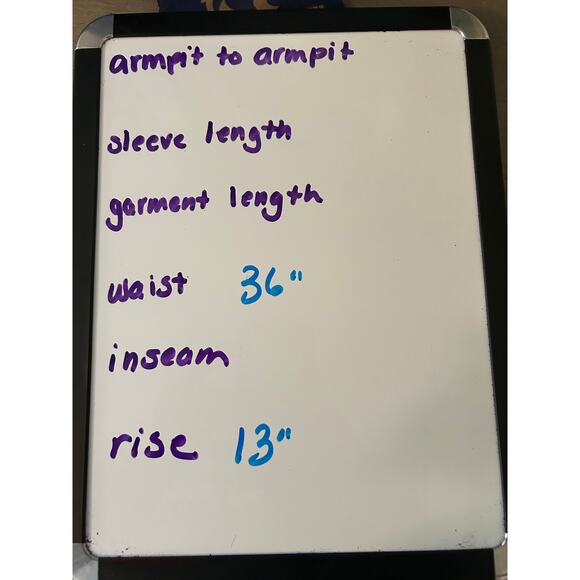 armpit to armpit
sleeve length
garment length
waist 36"
inseam
rise 13"